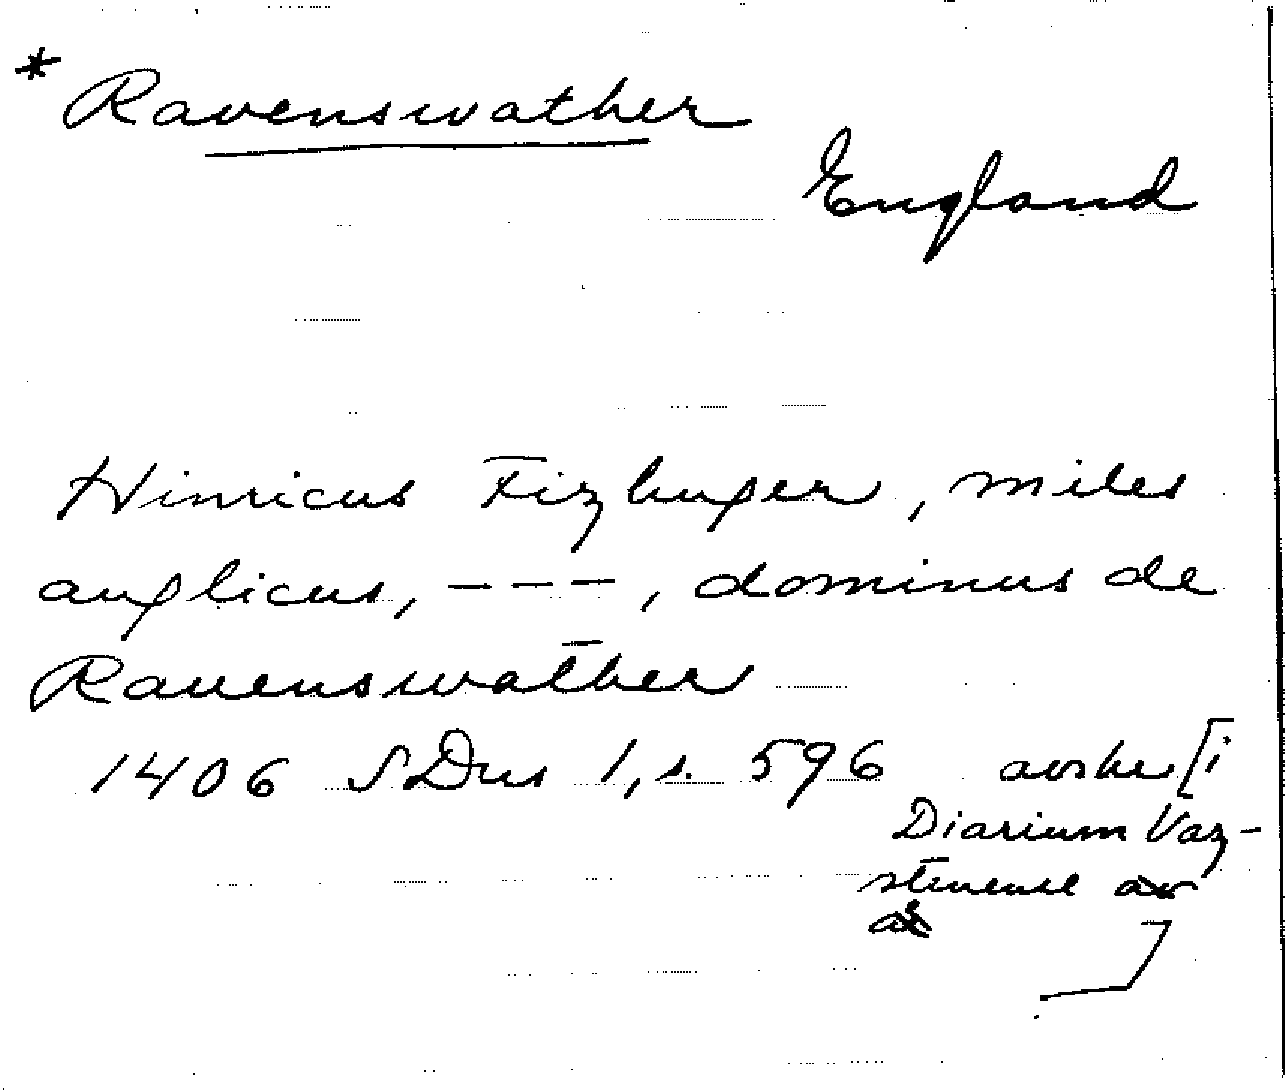 * Ravenswather
England
Hinricus Fizhuger, miles
anglicus, - - - , dominus de
Rauenswather
1406 SDns 1, s. 596 avskr [i
Diarium Vaz-
stenense
]